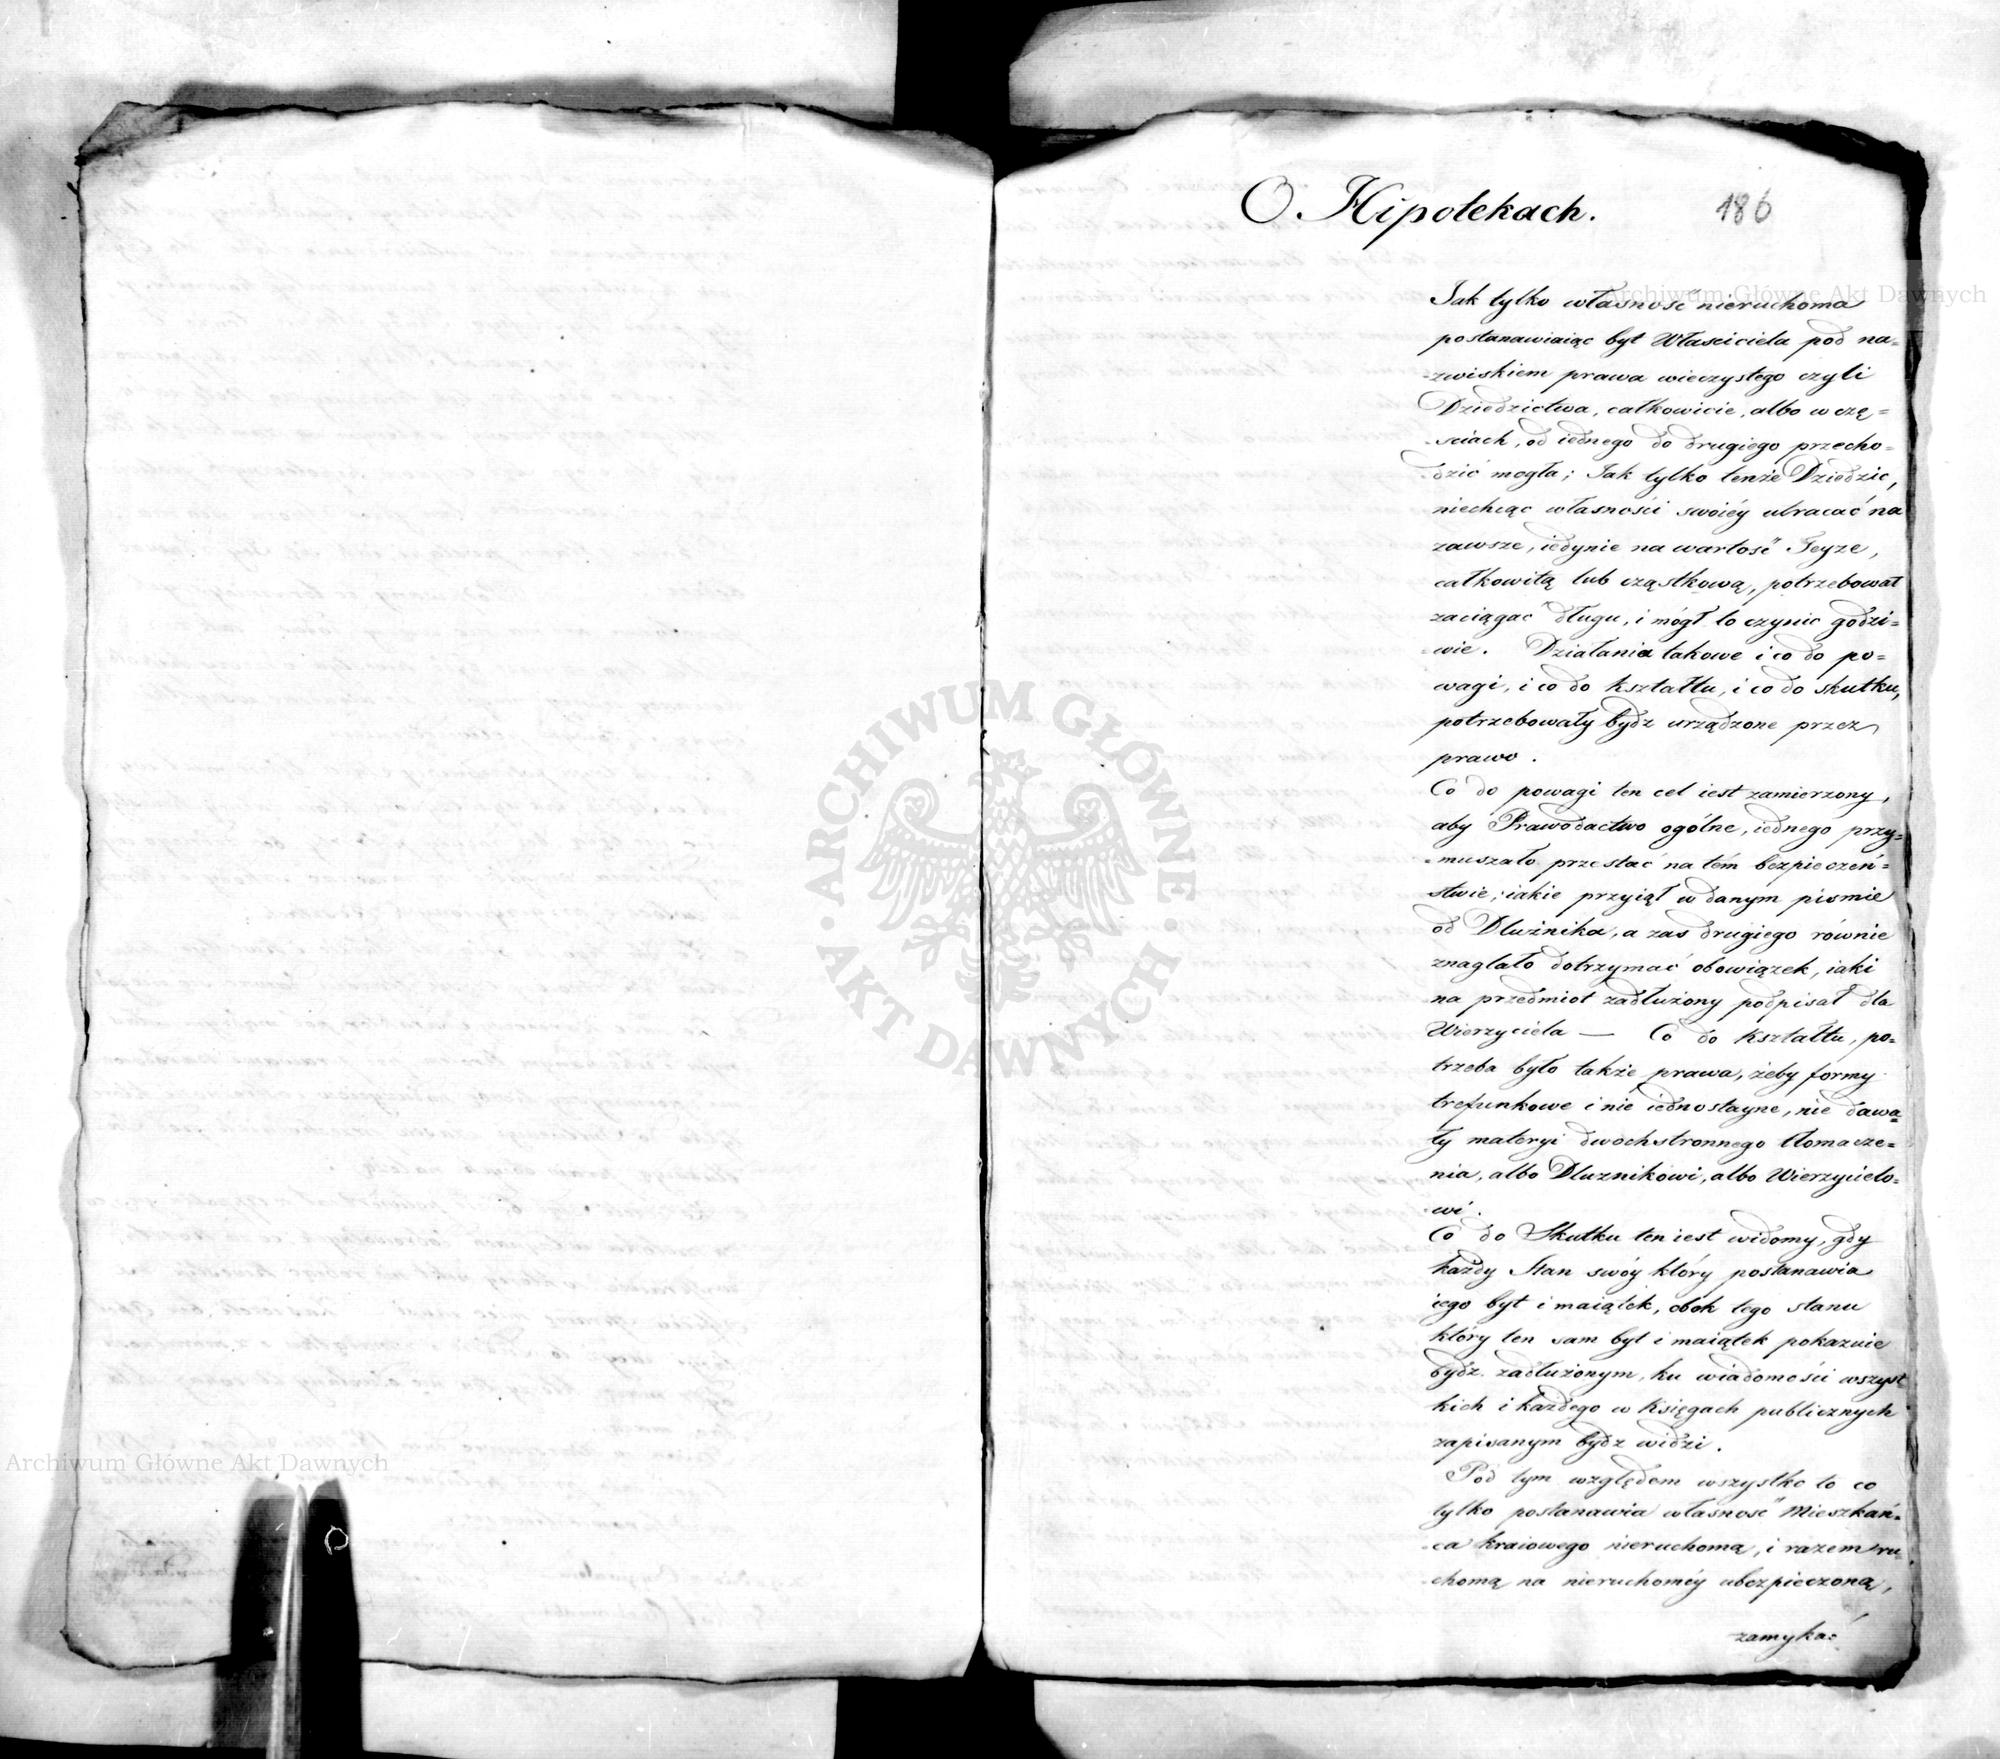 O Hipotekach.
186
Jak tylko własność nieruchoma
postanawiaiąc byt Właściciela pod na=
=zwiskiem prawa wieczystego czyli
Dziedzictwa, całkowicie, albo w czę=
=ściach, od iednego do drugiego przecho=
=dzić mogła; Jak tylko tenże Dziedzic,
niechcąc własności swoiéy utracać na
zawsze, iedynie na wartość Jeyże,
całkowitą lub cząstkową, potrzebował
zaciągać długu, i mógł to czynić godzi=
=wie. Działania takowe i co do po=
wagi, i co do kształtu, i co do skutku,
potrzebowały bydź urządzone przez
prawo.
Co do powagi ten cel iest zamierzony,
aby Prawodactwo ogólne, iednego przy=
=muszało przestać na tém bezpieczeń=
stwie; iakie przyiął w danym pismie
od Dłużnika, a zaś drugiego równie
znaglało dotrzymać obowiązek, iaki
na przedmiot zadłużony podpisał dla
Wierzyciela — Co do kształtu, po=
trzeba było także prawa, żeby formy
trefunkowe i nie iednostayne, nie dawa=
ły materyi dwochstronnego tłomacze=
nia, albo Dłużnikowi, albo Wierzycielo=
=wi.
Co do Skutku ten iest widomy, gdy
każdy Stan swóy który postanawia
iego byt i maiątek, obok tego stanu
który ten sam byt i maiątek pokazuie
bydź zadłużonym, ku wiadomości wszyst
kich i każdego w Księgach publicznych
zapisanym bydź widzi.
Pod tym względem wszystko to co
tylko postanawia własność Mieszkań=
=ca kraiowego nieruchomą, i razem ru=
chomą na nieruchoméy ubezpieczoną,
zamykać
Archiwum Główne Akt Dawnych
Archiwum Główne Akt Dawnych
ARCHIWUM GŁÓWNE
AKT DAWNYCH